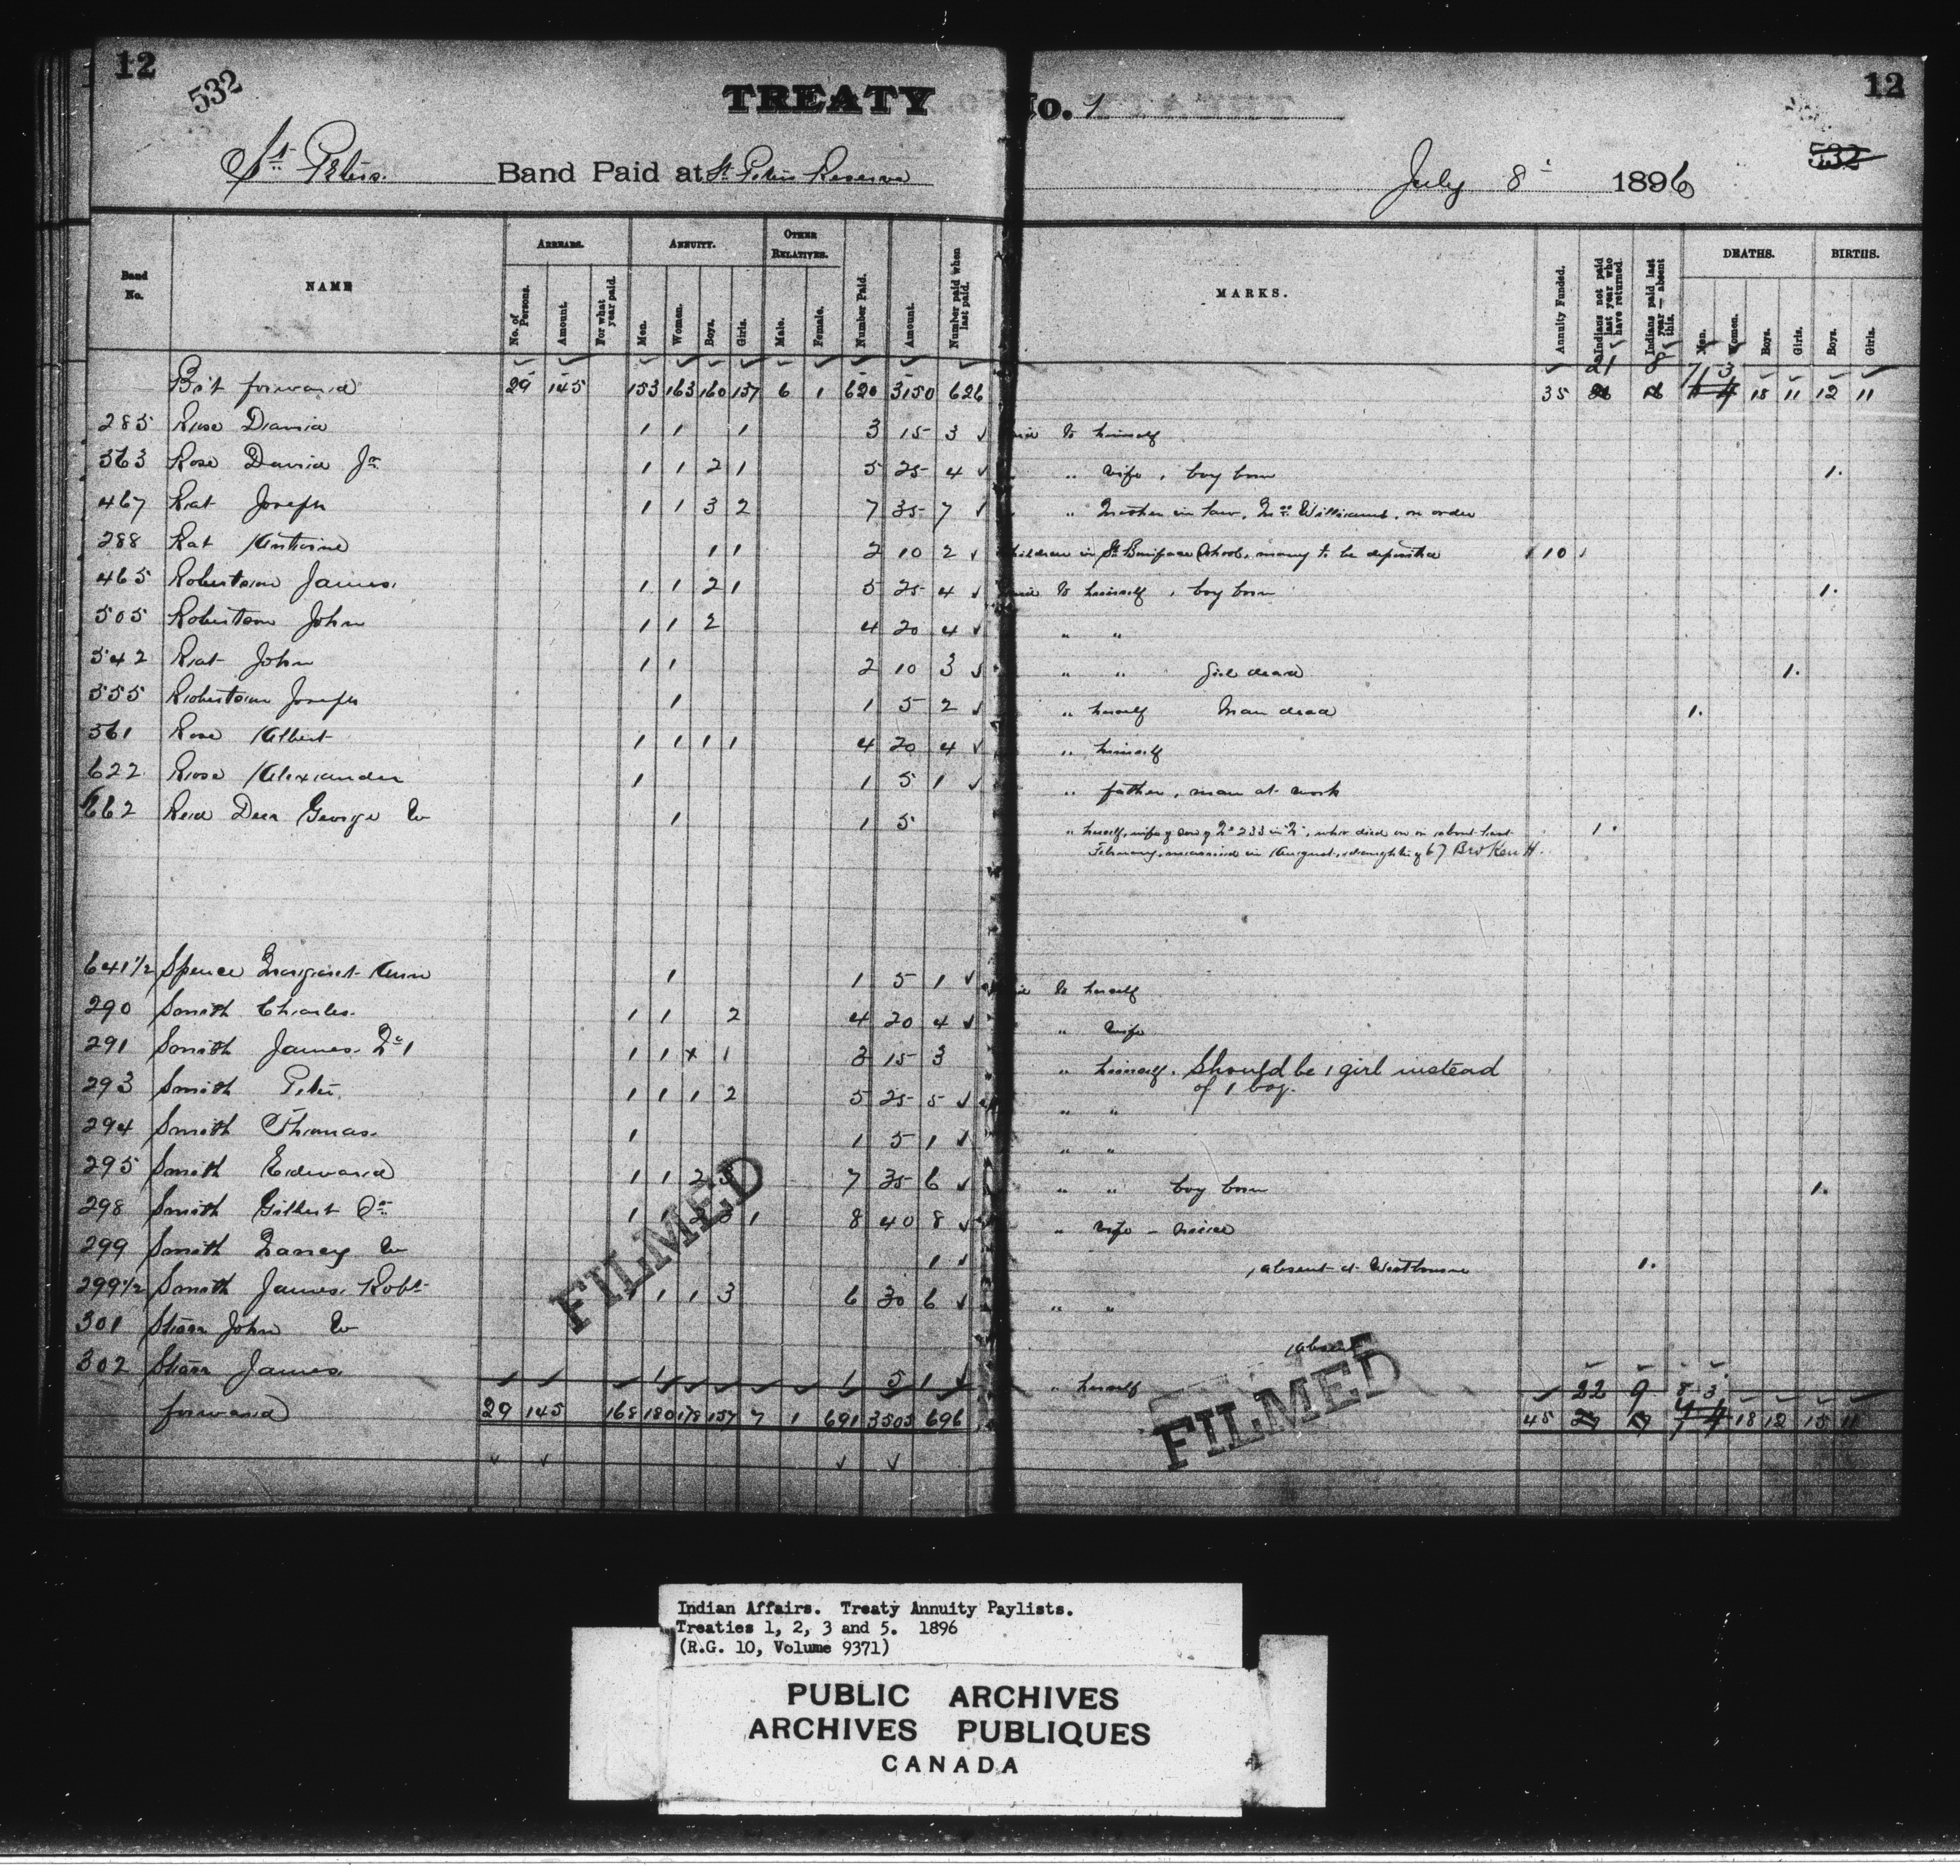 12 12
532 532
TREATY No. 1
St. Peters. Band Paid at St. Peters Reserve July 8th 1896
Band No. NAME ARREARS. ANNUITY. OTHER RELATIVES. Number Paid. Amount. Number paid when last paid. MARKS. Annuity Funded. Indians not paid last year who have returned. Indians paid last year — absent this. DEATHS. BIRTHS.
No. of Persons. Amount. For what year paid. Men. Women. Boys. Girls. Male. Female. Men. Women. Boys. Girls. Boys. Girls.
21 8 7 3
Bro't forward 29 145 153 163 160 137 6 1 620 3150 626 35 18 11 12 11
285 Rose David 1 1 1 3 15 3 ✓ Paid to himself
363 Rose David Jr. 1 1 2 1 5 25 4 ✓ " wife, boy born 1.
467 Rat Joseph 1 1 3 2 7 35 7 ✓ " Mother in law, Mrs Williams, on order
288 Rat Antoine 1 1 2 10 2 ✓ Children in St Boniface School, money to be deposited 10
465 Robertson James. 1 1 2 1 5 25 4 ✓ Paid to himself, boy born 1.
505 Robertson John 1 1 2 4 20 4 ✓ " "
542 Rat John 1 1 2 10 3 ✓ " " Girl dead 1.
555 Robertson Joseph 1 1 5 2 ✓ " herself Man dead 1.
561 Rose Albert 1 1 1 1 4 20 4 ✓ " himself
622 Rose Alexander 1 1 5 1 ✓ " father, man at work
662 Red Deer George W 1 1 5 " herself, wife of son of No 233 in No, who died on or about last 1.
February, married in August, daughter of 67 Broken H.
641½ Spence Margaret Ann 1 1 5 1 ✓ Paid to herself
290 Smith Charles. 1 1 2 4 20 4 ✓ " wife
291 Smith James No 1 1 1 x 1 3 15 3 " himself. Should be 1 girl instead
of 1 boy.
293 Smith Peter 1 1 1 2 5 25 5 ✓ " "
294 Smith Thomas. 1 1 5 1 ✓ " "
295 Smith Edward 1 1 2 3 7 35 6 ✓ " " boy born 1.
298 Smith Gilbert Sr. 1 1 1 8 40 8 ✓ " wife - niece
299 Smith Nancy W 1 ✓ absent at Westbourne 1.
299½ Smith James Robt. 1 1 1 3 6 30 6 ✓ " "
301 Starr John W absent
302 Starr James. 1 1 5 1 ✓ " herself
22 9 8 3
forward 29 145 168 180 178 157 7 1 691 3505 696 45 18 12 15 11
FILMED
FILMED
Indian Affairs. Treaty Annuity Paylists.
Treaties 1, 2, 3 and 5. 1896
(R.G. 10, Volume 9371)
PUBLIC ARCHIVES
ARCHIVES PUBLIQUES
CANADA